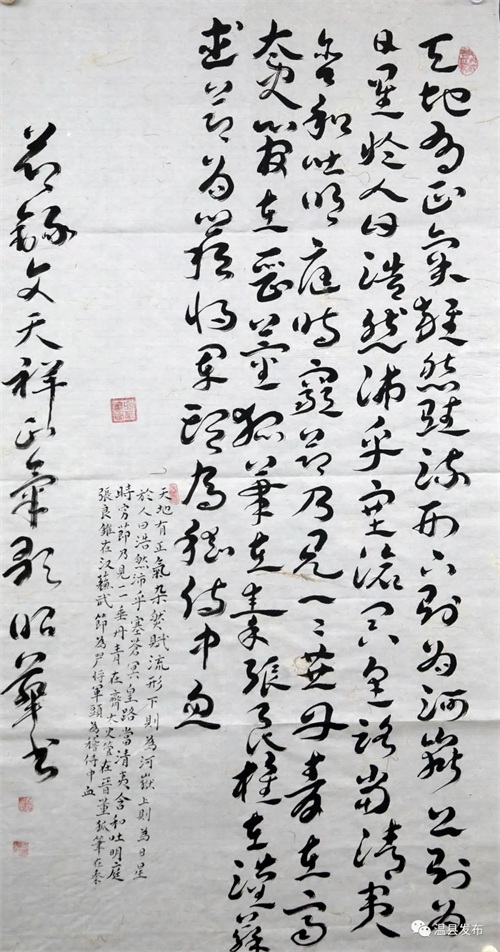 天地有正氣雜然賦流形下則為河嶽上則為
日星於人曰浩然沛乎塞滄冥皇路當清夷
含和吐明庭時窮節乃見一一垂丹青在齊
太史簡在晉董狐筆在秦張良椎在漢蘇
武節為嚴將軍頭為嵇侍中血
节錄文天祥正氣歌昭華书
天地有正氣杂然賦流形下則為河嶽上則為日星
於人曰浩然沛乎塞蒼冥皇路當清夷含和吐明庭
時穷節乃見一一垂丹青在齊太史筦在晉董狐筆在秦
張良錐在汉蘇武節為严将軍頭為嵇侍中血
温县发布